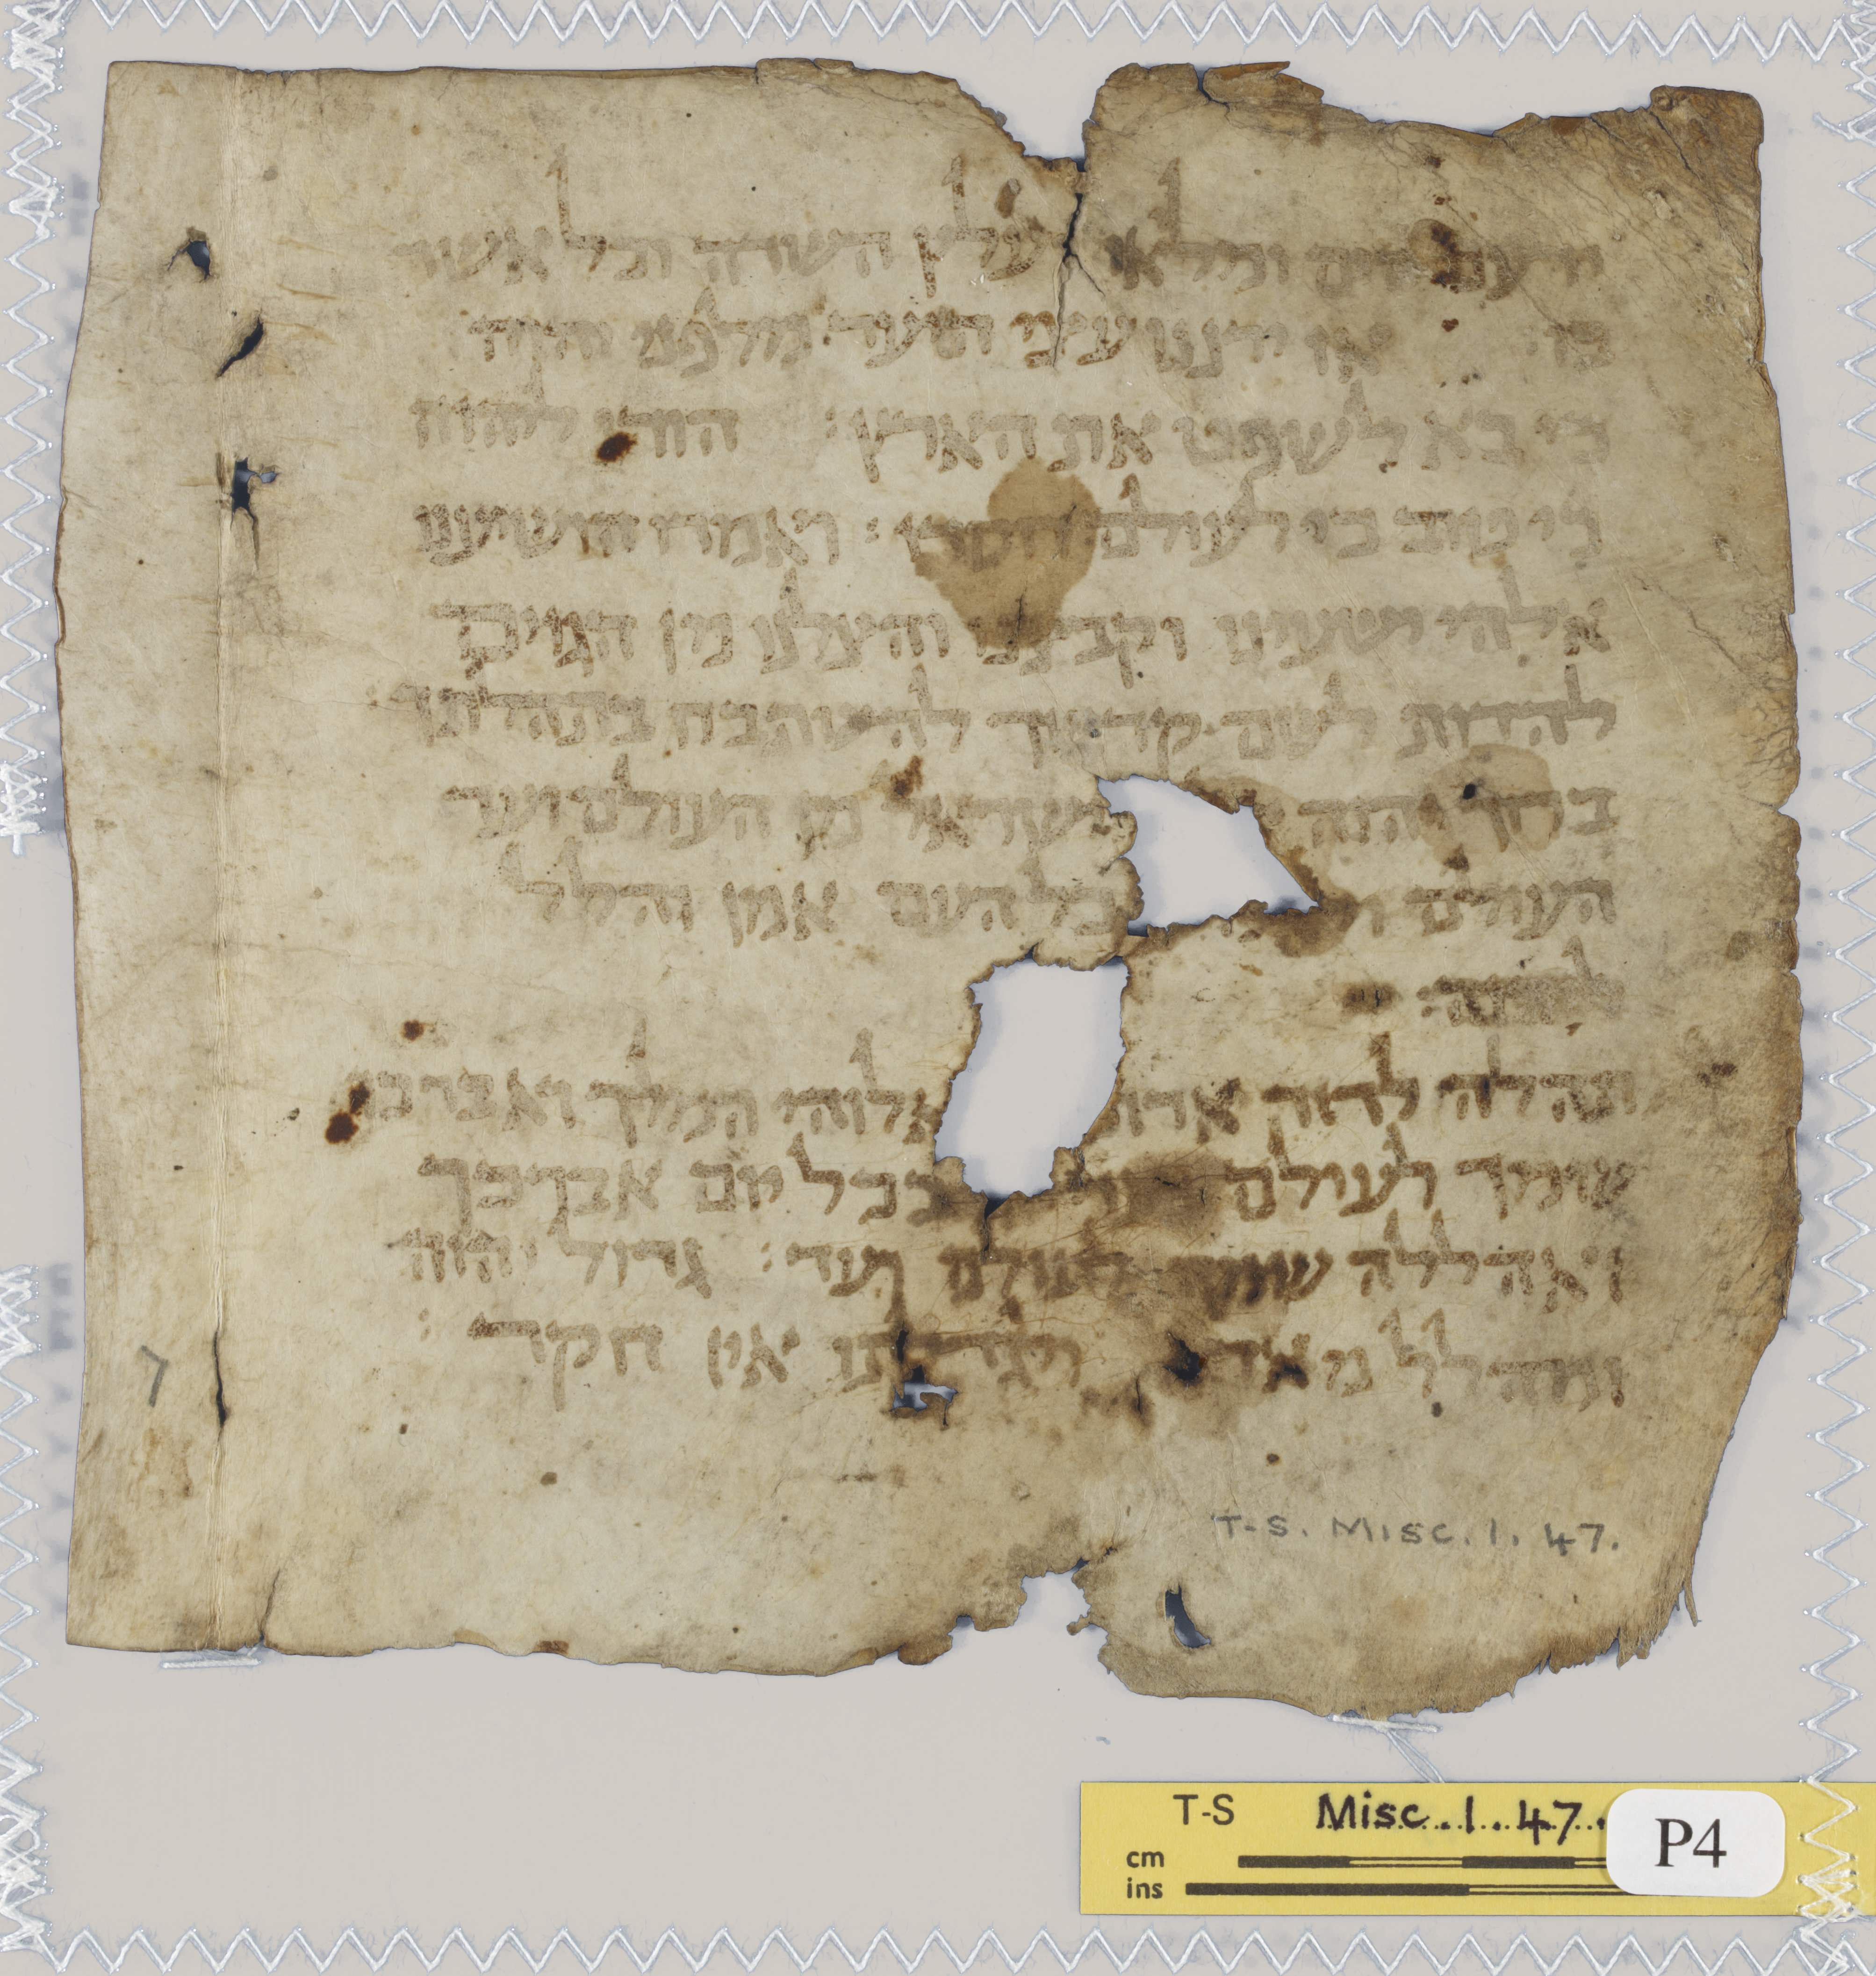 ירעם הים ומלאו יעלץ השדה וכל אשר
בו אז ירננו עצי היער מלפני יהוה
כי בא לשפט את הארץ : הודו ליהוה
כי טוב כי לעולם חסדו : ואמרו הושיענו
אלהי ישעינו וקבצנו והצילנו מן הגוים
להדות לשם קדשך להשתבח בתהלתך :
ברוך יהוה ישראל מן העולם ועד
העולם כל העם אמן והלל
ליהוה :
תהלה לדוד אלוהי המלך ואברכה
שמך לעולם בכל יום אברכך
ואהללה שמך לעולם ועד : גדול יהוה
ומהלל מאד ולגדלתו אין חקר :
7
T-S. Misc. 1. 47.
T-S Misc. 1. 47.
P4
cm
ins